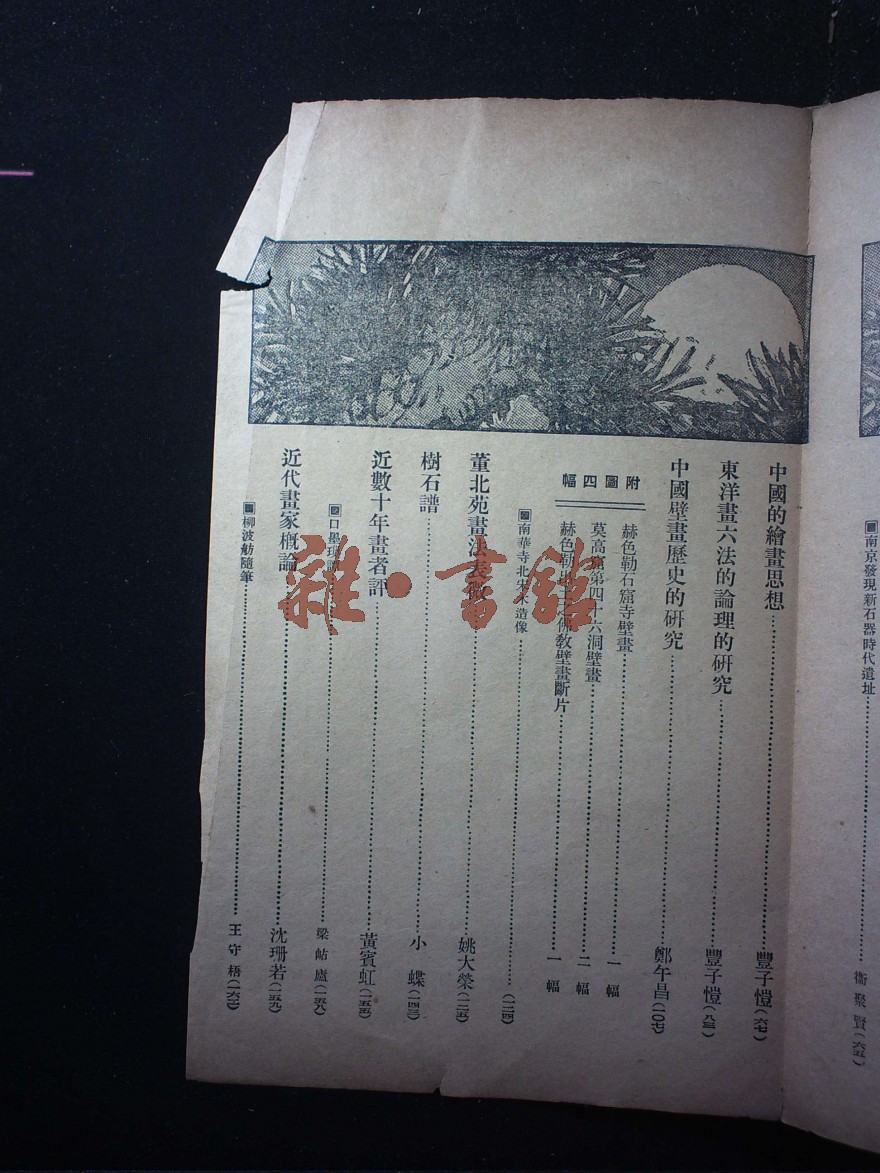 南京發現新石器時代遺址 衞聚賢(六五)
中國的繪畫思想 豐子愷(六七)
東洋畫六法的論理的研究 豐子愷(八三)
中國壁畫歷史的研究 鄭午昌(一〇七)
附圖四幅
赫色勒石窟寺壁畫 一幅
莫高窟第四十六洞壁畫 二幅
赫色勒 佛教壁畫斷片 一幅
南華寺北宋木造像 (一二四)
董北苑畫法表微 姚大榮(一二五)
樹石譜 小蝶(一四三)
近數十年畫者評 黃賓虹(一五五)
口墨 梁岵廬(一五八)
近代畫家概論 沈珊若(一五九)
柳波舫隨筆 王守梧(一六六)
雜·書館